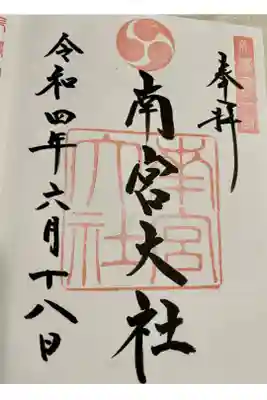 奉拝
南宮大社
南宮
大社
令和四年六月十八日